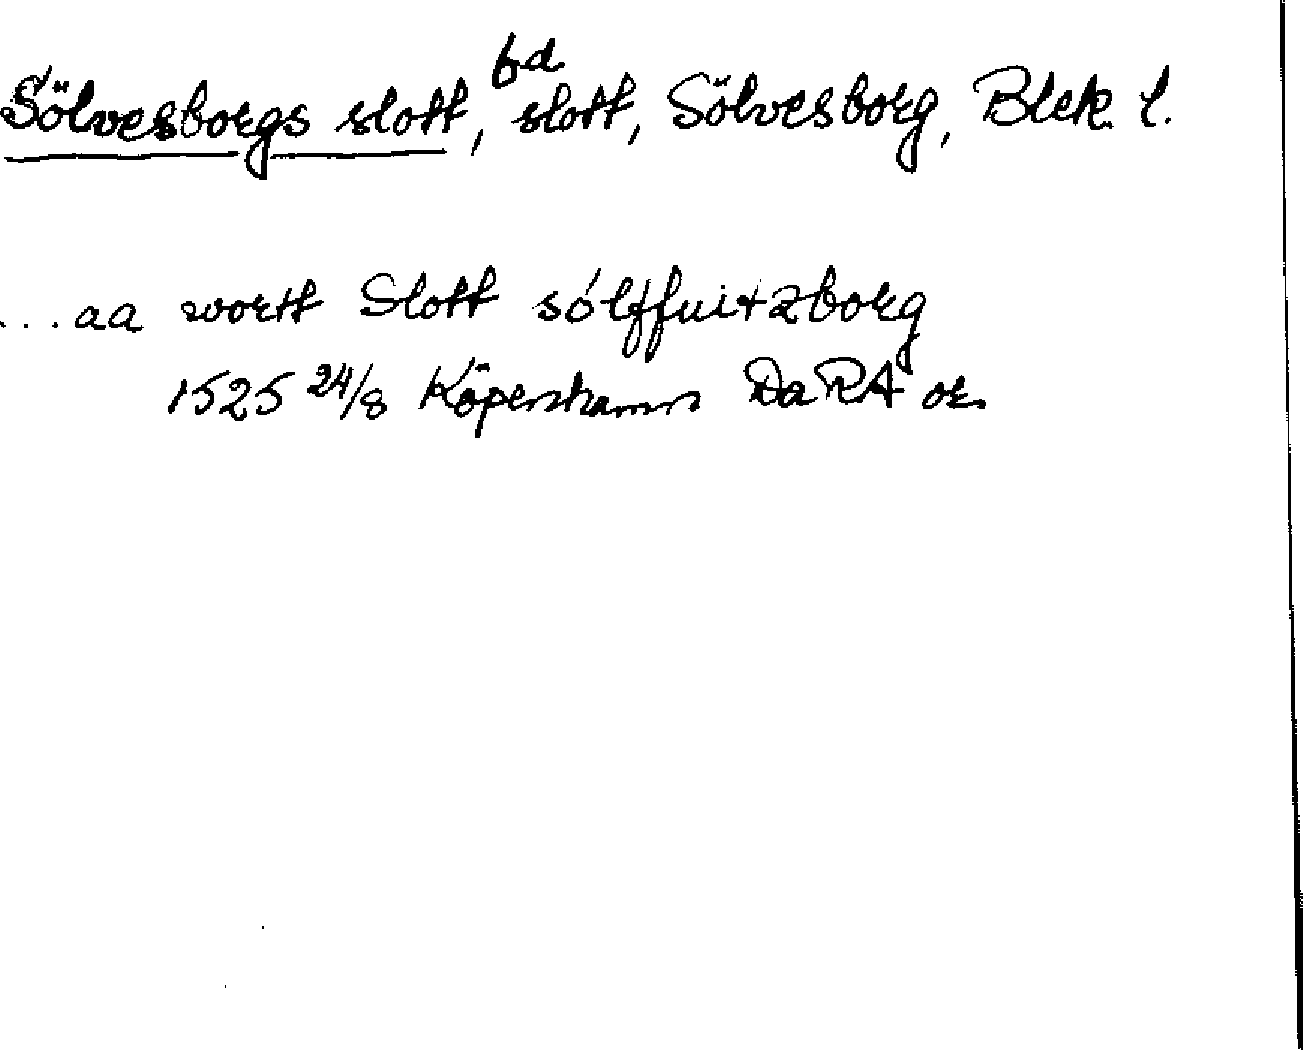 Sölvesborgs slott, fd slott, Sölvesborg, Blek. l.
...aa wortt Slott sólffuitzborg
1525 24/8 Köpenhamn DaRA or.